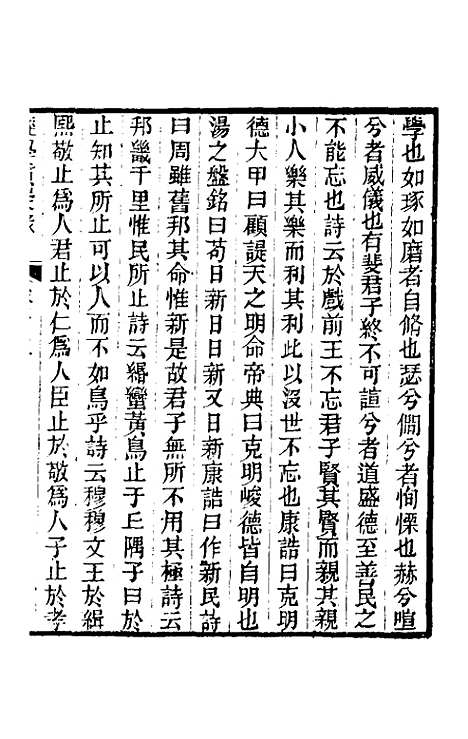 學也如琢如磨者自脩也瑟兮僩兮者恂慄也赫兮喧
兮者威儀也有斐君子終不可諠兮者道盛德至善民之
不能忘也詩云於戲前王不忘君子賢其賢而親其親
小人樂其樂而利其利此以沒世不忘也康誥曰克明
德大甲曰顧諟天之明命帝典曰克明峻德皆自明也
湯之盤銘曰苟日新日日新又日新康誥曰作新民詩
曰周雖舊邦其命惟新是故君子無所不用其極詩云
邦畿千里惟民所止詩云緡蠻黃鳥止于丘隅子曰於
止知其所止可以人而不如鳥乎詩云穆穆文王於緝
熙敬止爲人君止於仁爲人臣止於敬爲人子止於孝